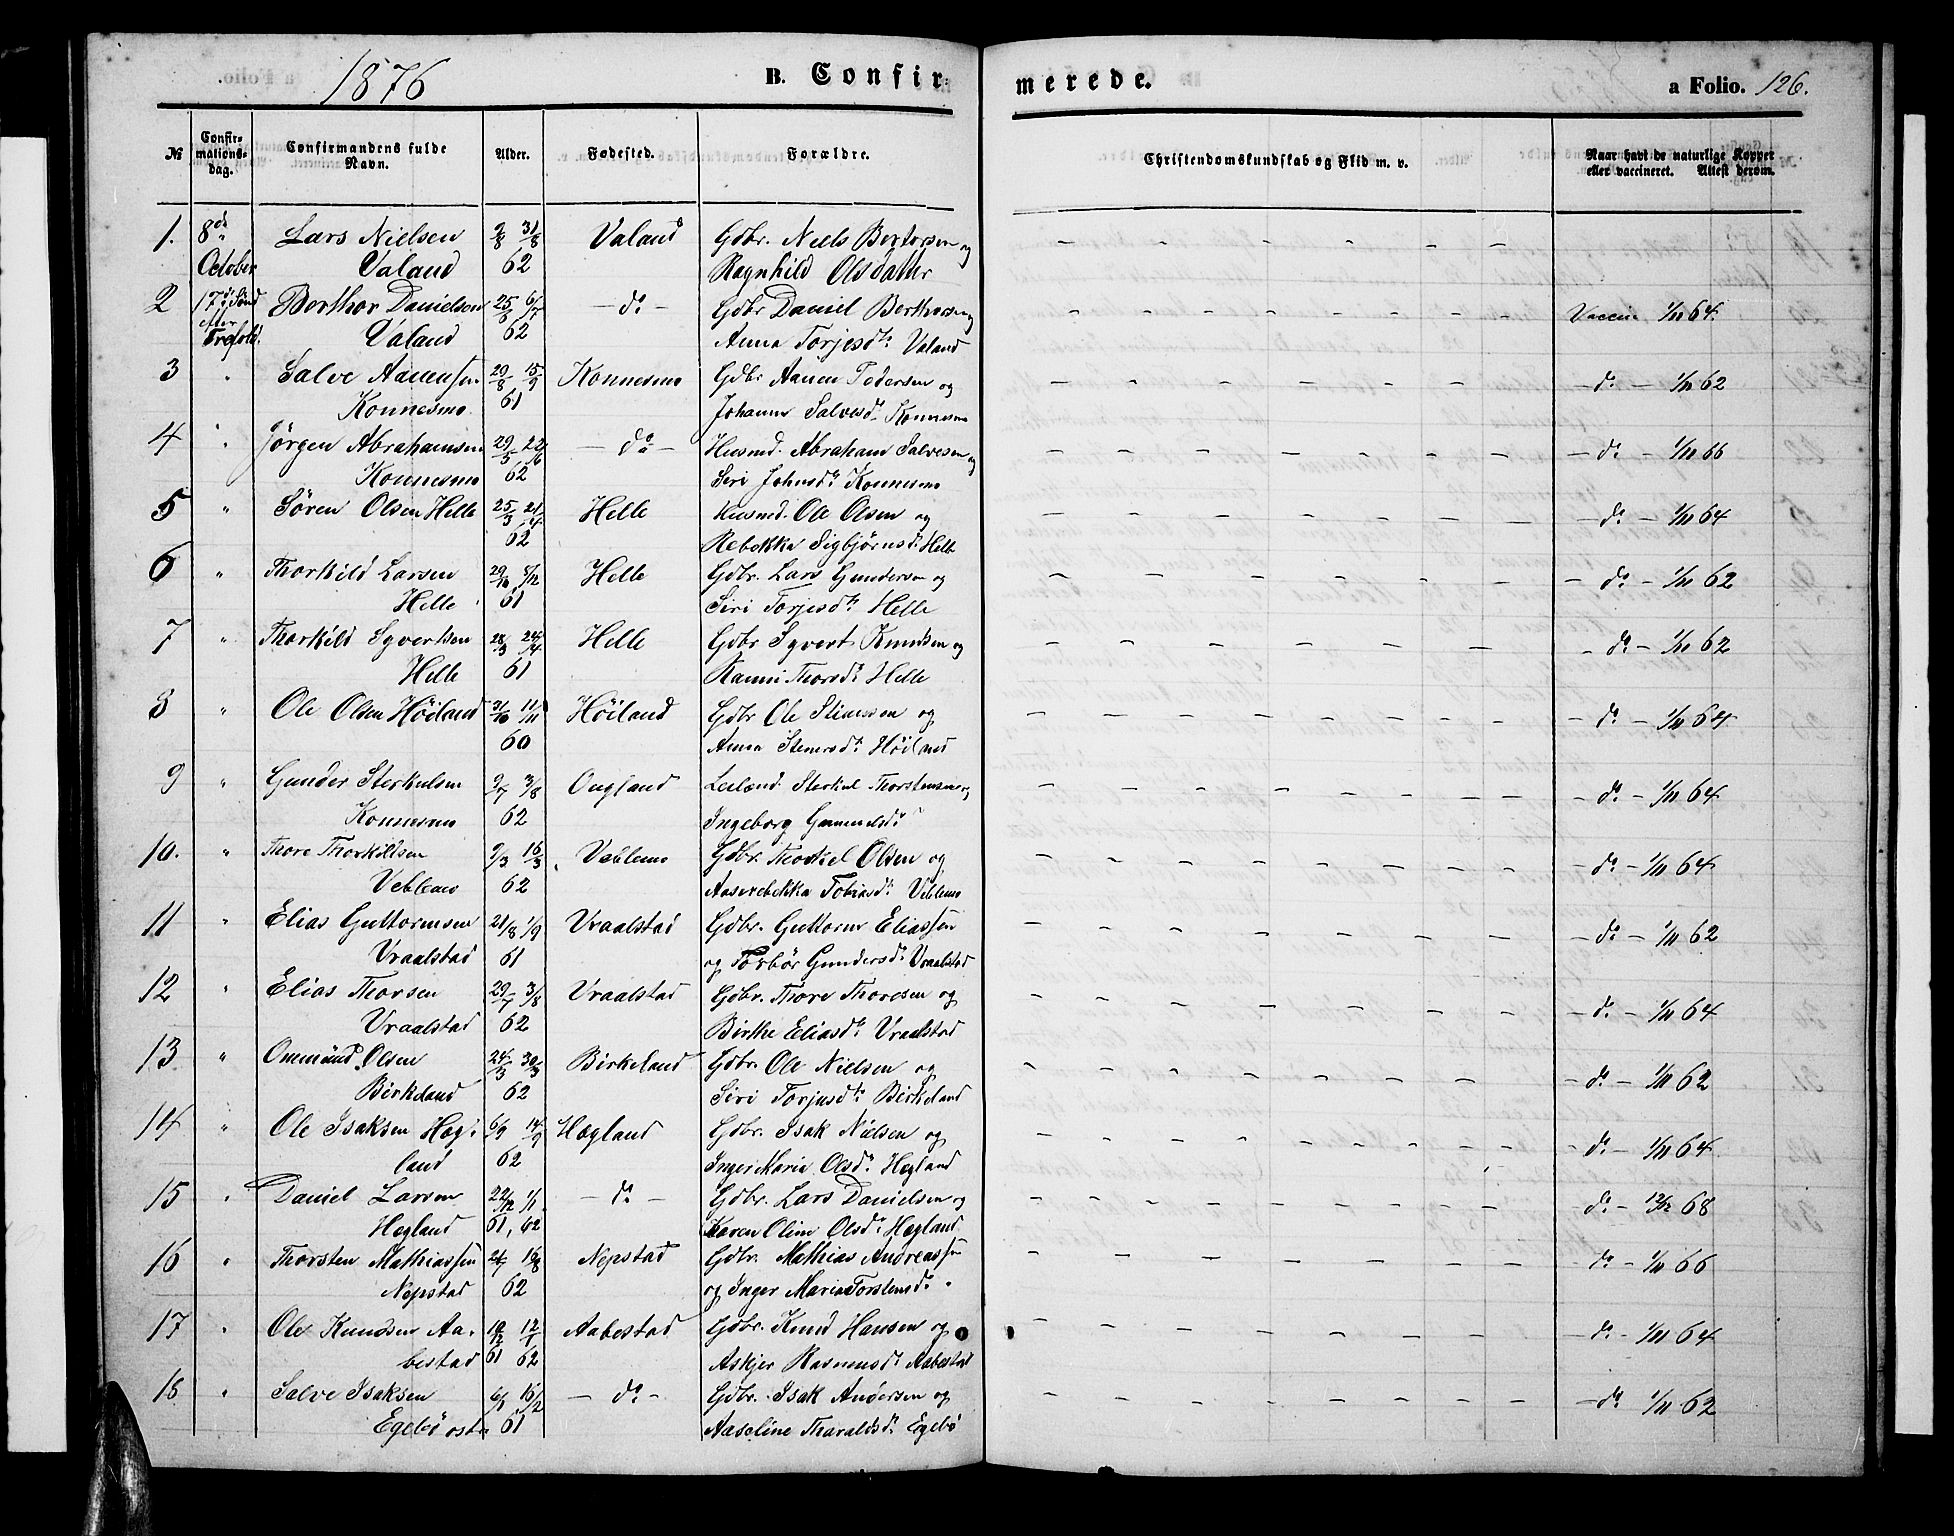 1876
B. Confirmerede.
a Folio. 126.
№ Confirmationsdag. Confirmandens fulde Navn. Alder. Fødested. Forældre. Christendomskundskab og Flid m. v. Naar havt de naturlige Kopper eller vaccineret. Attest derom.
1. 8de Lars Nielsen 9/8 31/8 Valand Gdbr. Niels Bertorsen og
October Valand 62 Ragnhild Olsdattr
2 17de Sønd Berthor Danielsen 25/5 6/7 — do — Gdbr Daniel Berthorsen og Vaccin 1/11 64.
efter Trefold. Valand 62 Anna Torjesdtr Valand
3 " Salve Aanensen 29/8 15/9 Konnesmo Gdbr Aanen Pedersen og — do — 1/11 62
Konnesmo. 61 Johanne Salvesdr Konnesmo
4 " Jørgen Abrahamsen 29/5 22/6 — do — Husmd. Abraham Salvesen og — do — 1/11 66
Konnesmo 62 Siri Johnsdtr Konnesmo
5 " Søren Olsen Helle 25/3 21/4 Helle Husmd. Ole Olsen og — do — 1/11 64
62 Rebekka Sigbjørnsdr Helle
6 " Thorkild Larsen 29/10 8/12 Helle Gdbr. Lars Gundersen og — do — 1/11 62
Helle 61 Siri Torjesdtr Helle
7 " Thorkild Syvertsen 28/3 24/4 Helle Gdbr Syvert Knudsen og — do — 1/11 62
Helle 61 Hanni Thorsdr Helle
8 " Ole Olsen Höiland 31/10 11/11 Höiland Gdbr Ole Stiensen og — do — 1/11 64
60 Anna Stenersdr Höiland
9 " Gunder Sterkulsen 9/7 3/8 Ougland Leilænd Sterkul Thorstensen og — do — 1/11 64
Konnesmo 62 Ingeborg Gammelsdr
10. " Thore Thorkildsen 9/3 16/3 Veblemo Gdbr. Thorkel Olsen og — do — 1/11 64
Veblemo 62 Aaserebekka Tobiasdtr Veblemo
11 " Elias Guttormsen 21/8 1/9 Vraalstad Gdbr. Guttorm Eliassen — do — 1/11 62
Vraalstad 61 og Torbör Gundersdr Vraalstad
12 " Elias Thorsen 29/7 3/8 Vraalstad Gdbr. Thore Thoresen og — do — 1/11 64
Vraalstad 62 Birthe Eliasdtr Vraalstad
13 " Ommund Olsen 24/3 30/3 Birkeland Gdbr. Ole Nielsen og — do — 1/11 62
Birkeland 62 Siri Torjusdtr Birkeland
14 " Ole Isaksen Hæg- 6/9 14/9 Hægland Gdbr. Isak Nielsen og — do — 1/11 64
land 62 Inger Maria Olsdr Hægland
15 " Daniel Larsen 22/12 1/1 — do — Gdbr. Lars Danielsen og — do — 13/12 68
Hægland 61, 62 Karen Oline Olsdr Hægland
16 " Thorsten Mathiassen 24/7 10/8 Nepstad Gdbr. Mathias Andreassen do — 1/11 66
Nepstad 62 og Inger Maria Torstensdr "
17 " Ole Knudsen Aa- 10/12 12/1 Aabestad Gdbr. Knud Hansen og — do — 1/11 64
bestad 61 62 Askjer Rasmusdr Aabestad
18 " Salve Isaksen 6/1 16/2 — do — Gdbr. Isak Andersen og — do — 1/11 62
Egebö östre 61 Aaseline Tharaldsdr Egebö